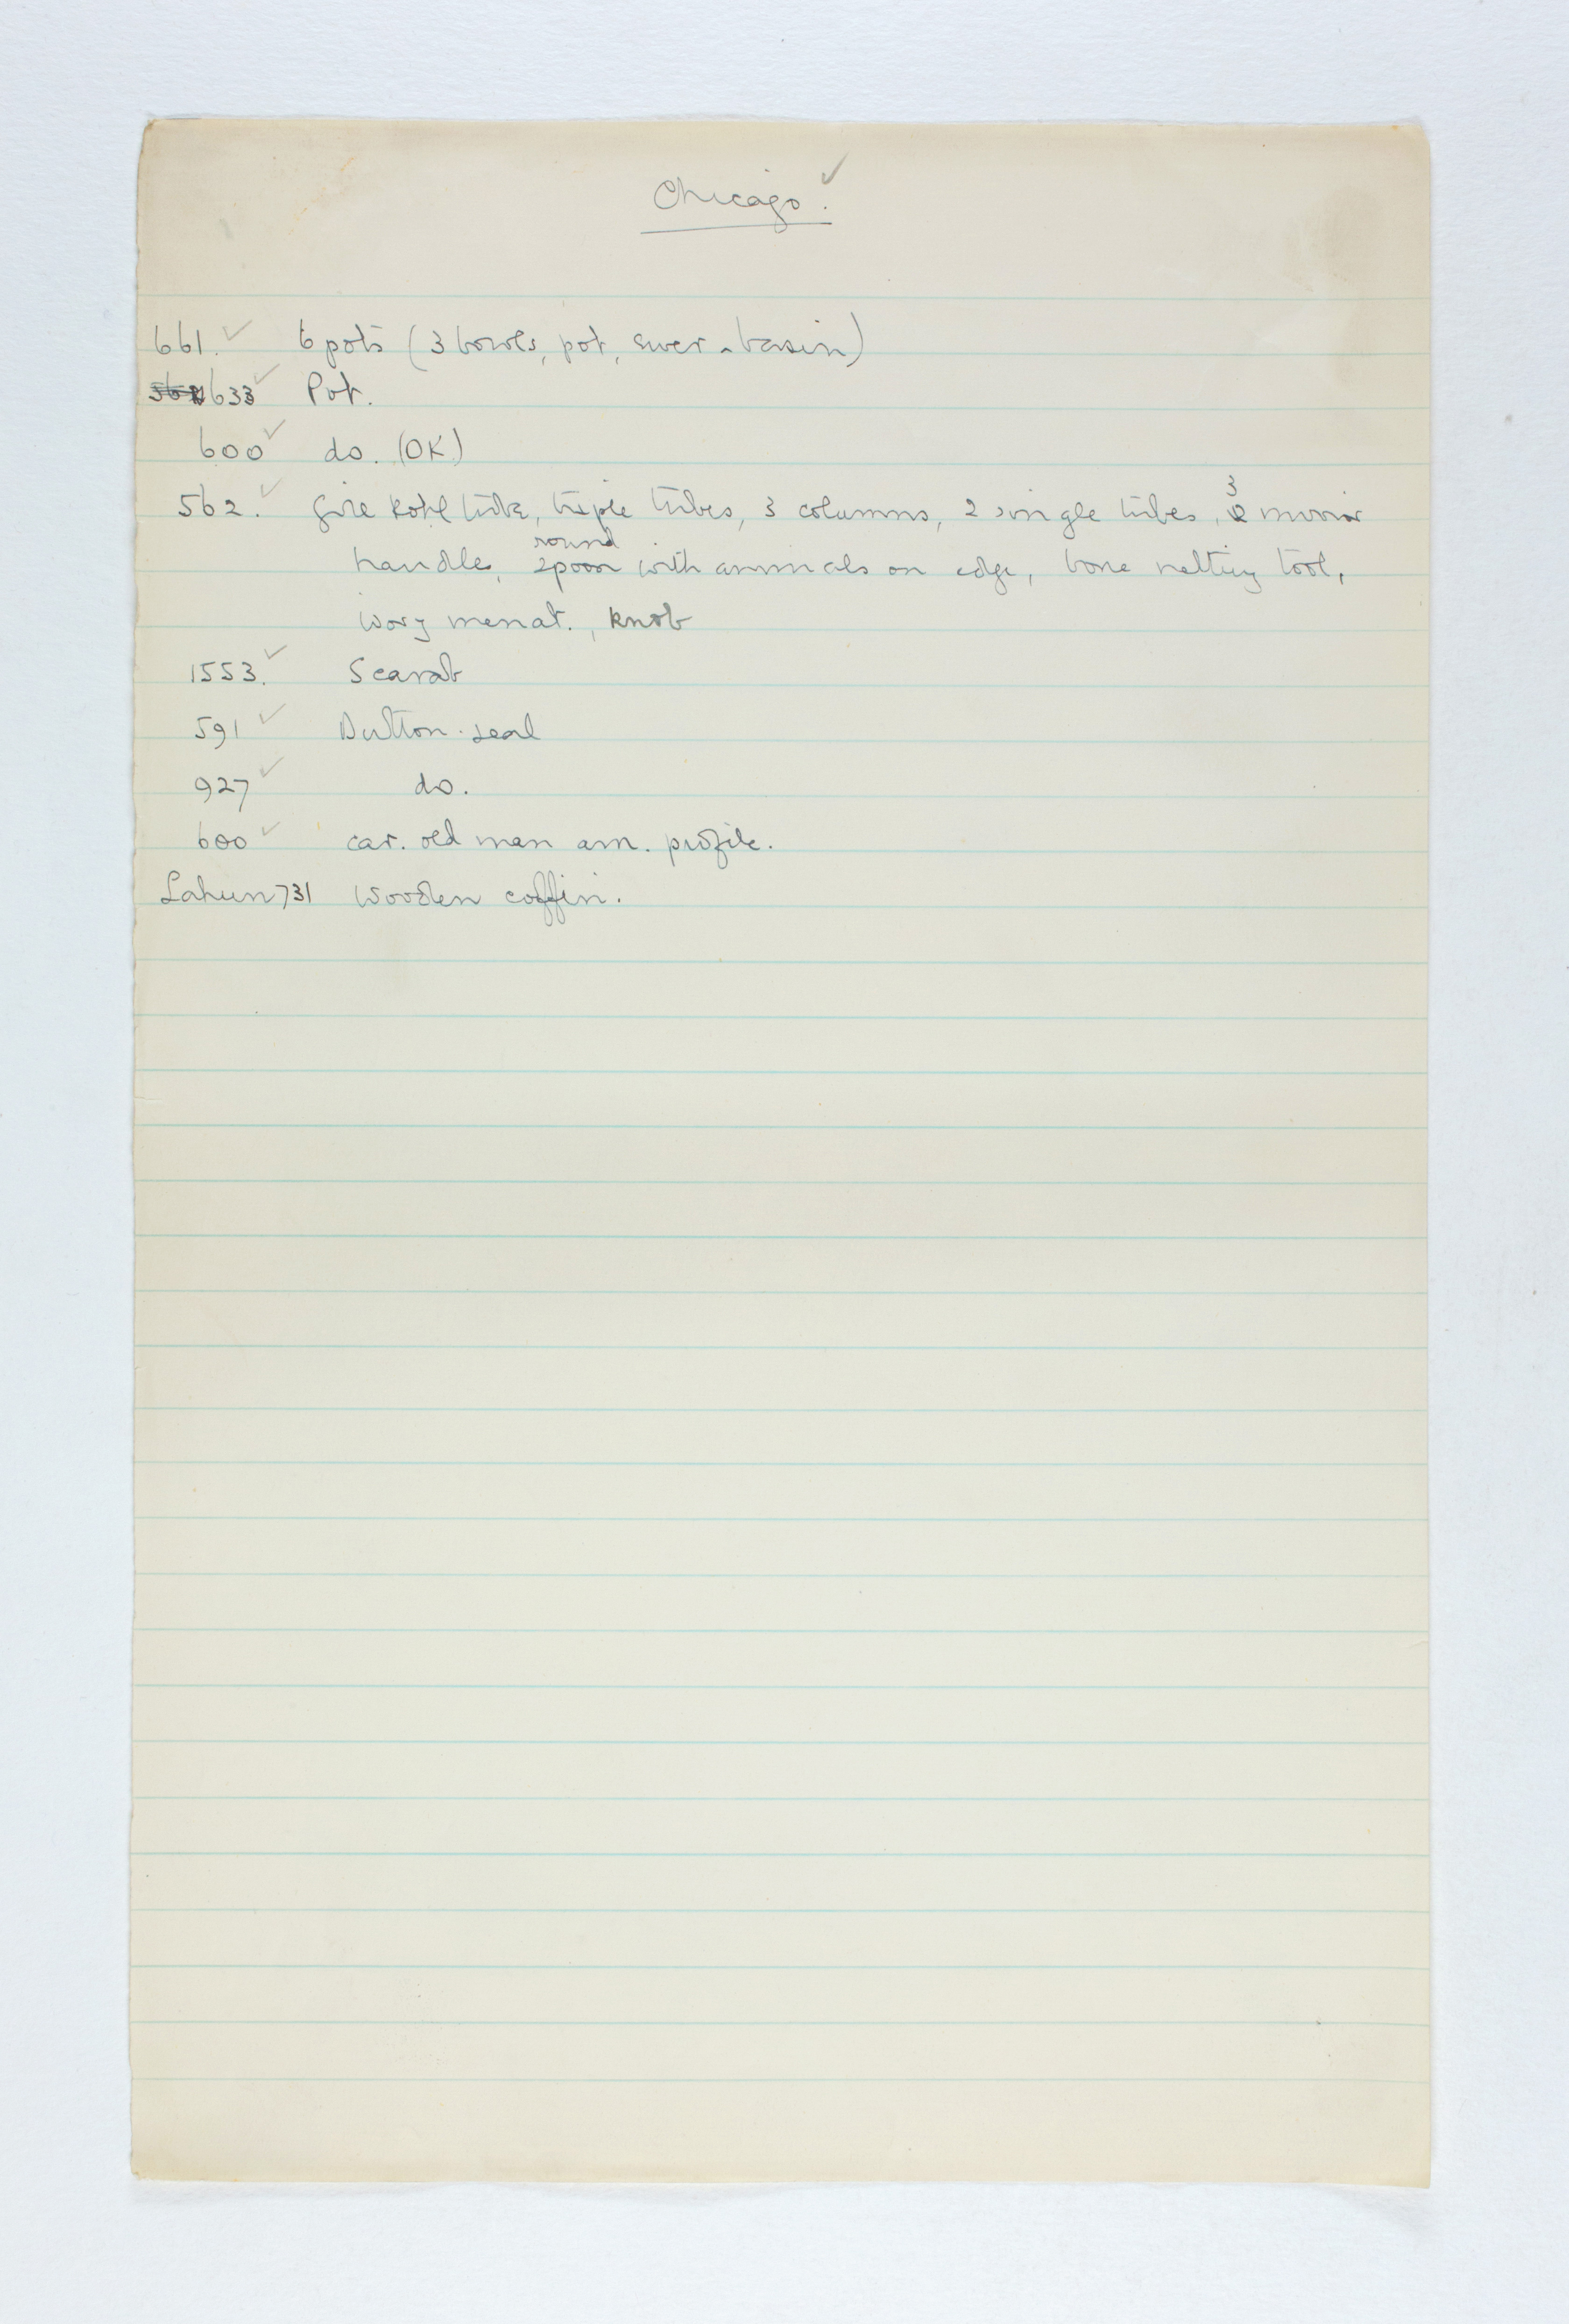 Chicago. ✓
661. ✓ 6 pots (3 bowls, pot, ewer & basin)
633 ✓ Pot.
600 ✓ do. (OK)
562. ✓ Girl kohl tube, triple tubes, 3 columns, 2 single tubes, 3 mirror
handles, round spoon with animals on edge, bone netting tool,
ivory menat., knob
1553. ✓ Scarab
591 ✓ Button-seal
927 ✓ do.
600 ✓ car. old man am. profile.
Lahun 731 Wooden coffin.